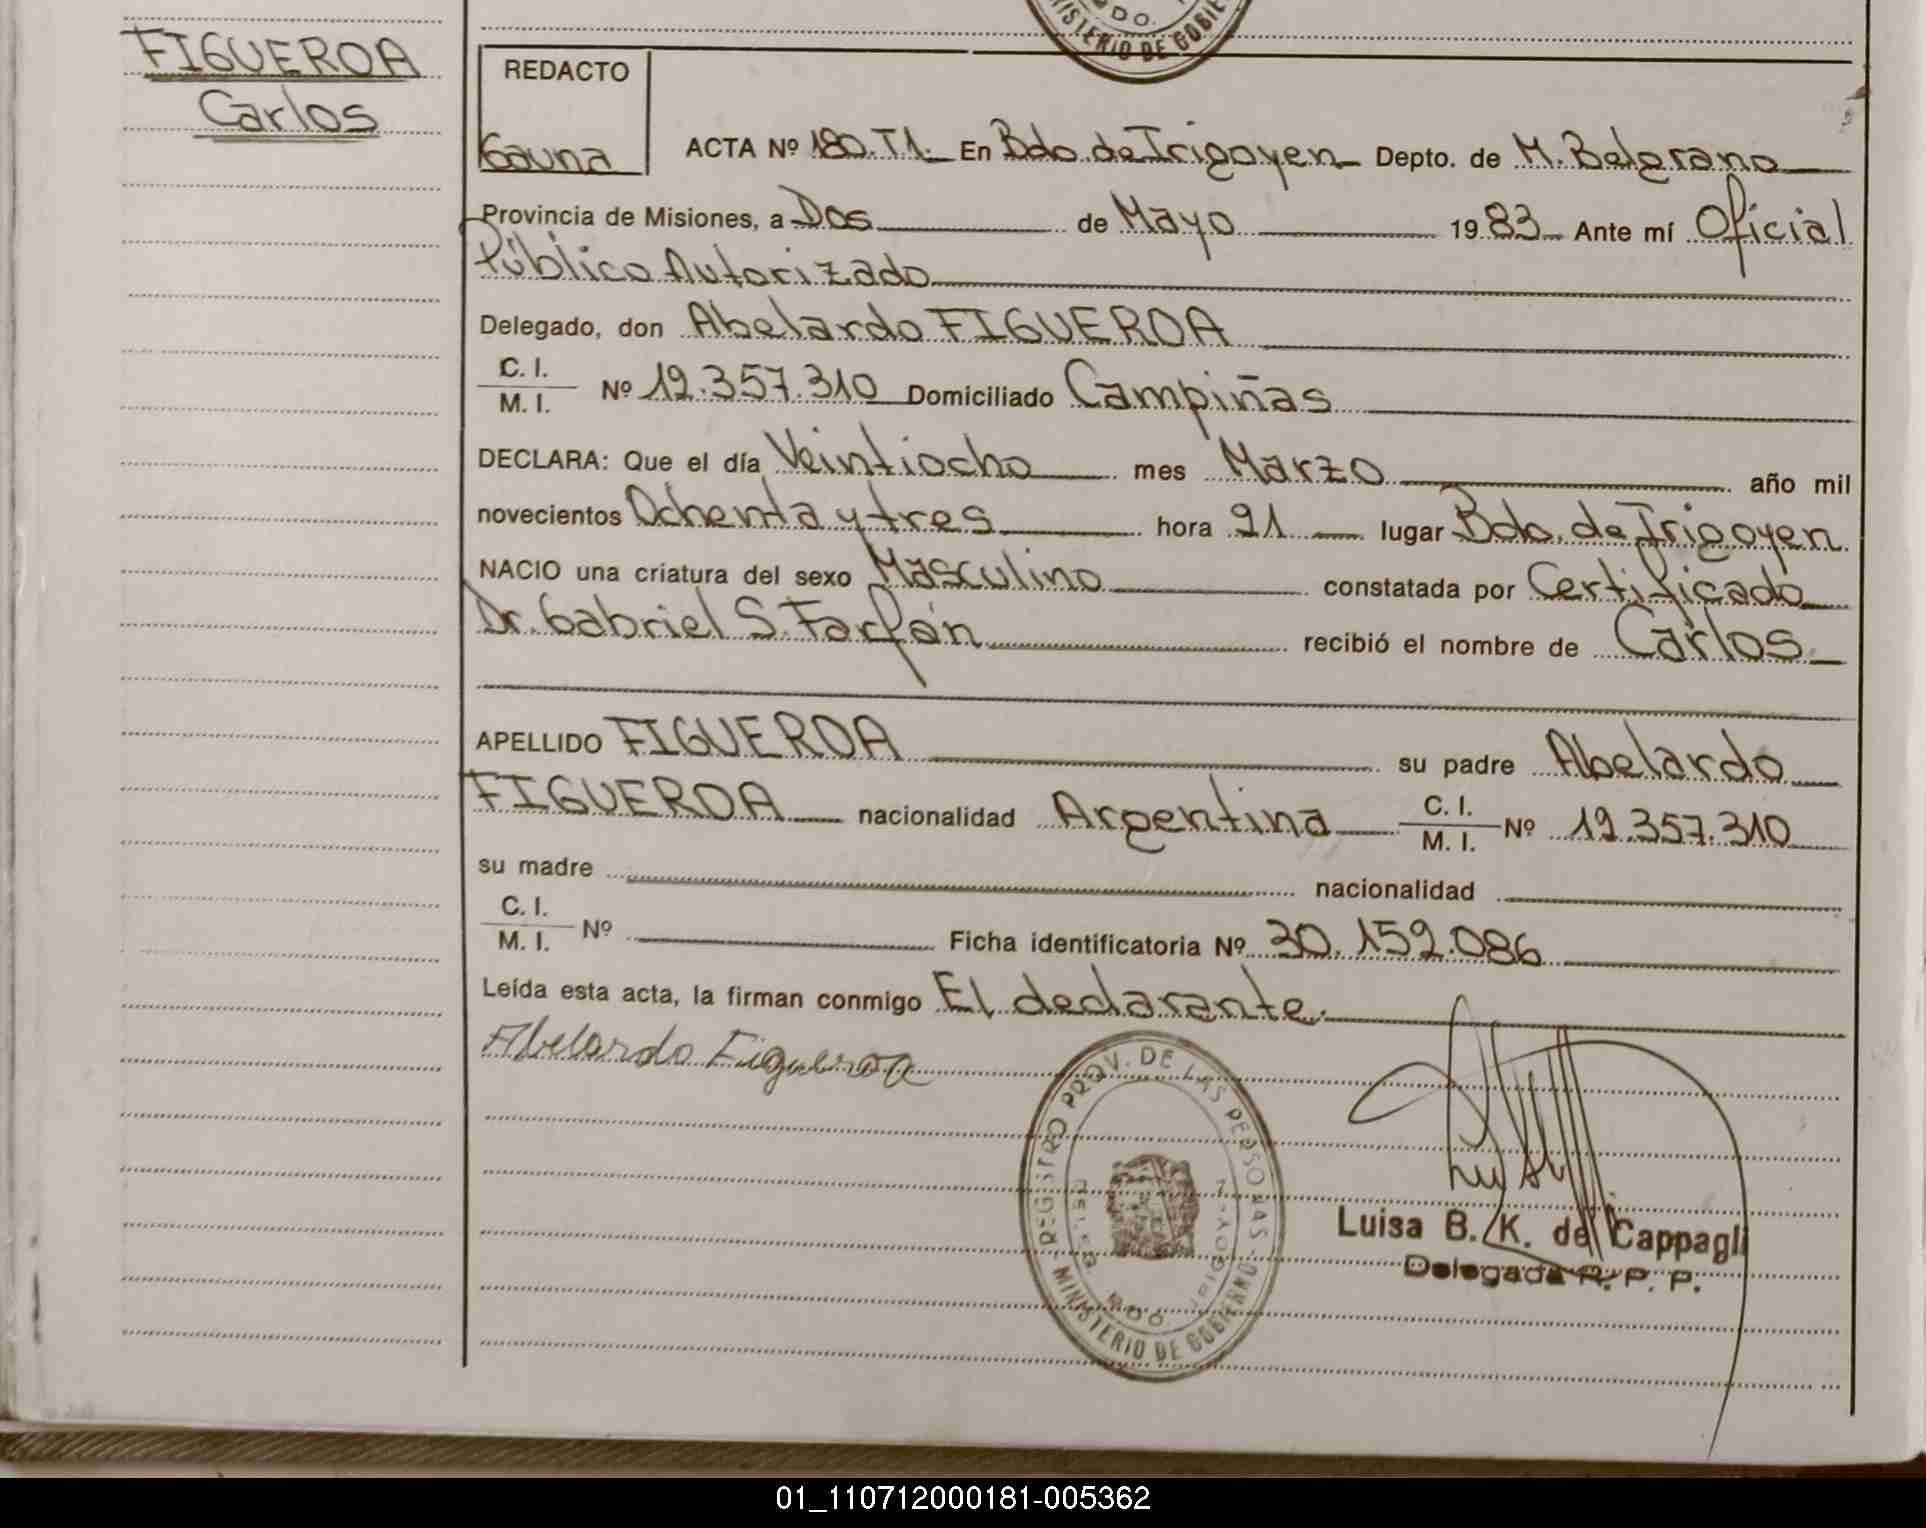 FIGUEROA
Carlos
MINISTERIO DE GOBIE
REDACTO
Gauna
ACTA Nº 180.T1. En Bdo de Irigoyen Depto. de M. Belgrano
Provincia de Misiones, a Dos de Mayo 1983 Ante mí Oficial
Público Autorizado
Delegado, don Abelardo FIGUEROA
C. I.
M. I. Nº 12.357.310 Domiciliado Campiñas
DECLARA: Que el día Veintiocho mes Marzo año mil
novecientos Ochenta y tres hora 21 lugar Bdo. de Irigoyen
NACIO una criatura del sexo Masculino constatada por Certificado
Dr. Gabriel S. Farfán recibió el nombre de Carlos
APELLIDO FIGUEROA su padre Abelardo
FIGUEROA nacionalidad Argentina C. I. M. I. Nº 12.357.310
su madre nacionalidad
C. I.
M. I. Nº Ficha identificatoria Nº 30.152.086
Leída esta acta, la firman conmigo El declarante.
Abelardo Figueroa
REGISTRO PROV. DE LAS PERSONAS
MINISTERIO DE GOBIERNO
Luisa B. K. de Cappagli
Delegada R. P. P.
01_110712000181-005362